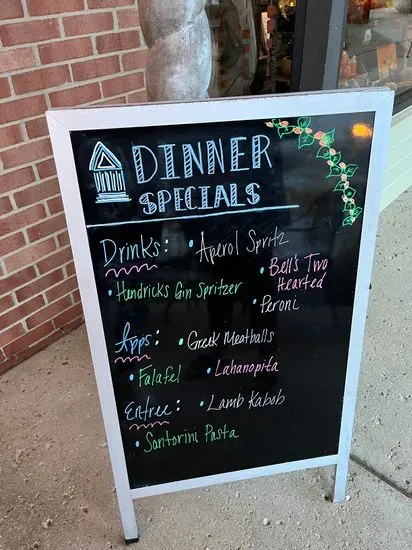 DINNER
SPECIALS
Drinks: • Aperol Spritz
• Hendricks Gin Spritzer
• Bell's Two
Hearted
• Peroni
Apps: • Greek Meatballs
• Falafel • Lahanopita
Entree: • Lamb Kabob
• Santorini Pasta